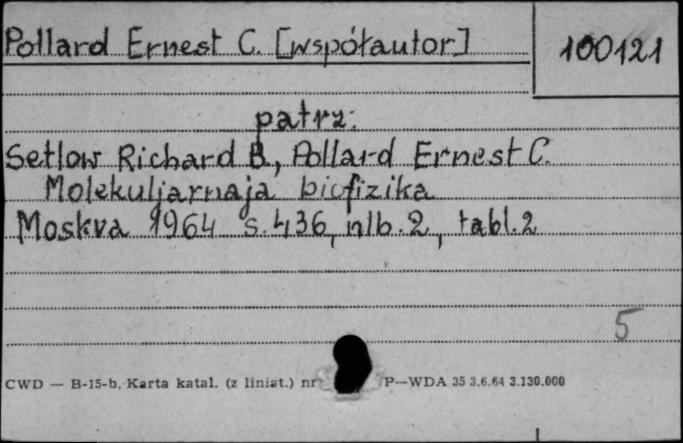 Pollard Ernest C. [współautor]
100121
patrz:
Setlow Richard B., Pollard Ernest C.
Molekuljarnaja biofizika
Moskva 1964 s. 436, nlb. 2, tabl. 2
5
CWD — B-15-b, Karta katal. (z liniat.) nr P—WDA 35 3.6.64 3.130.000